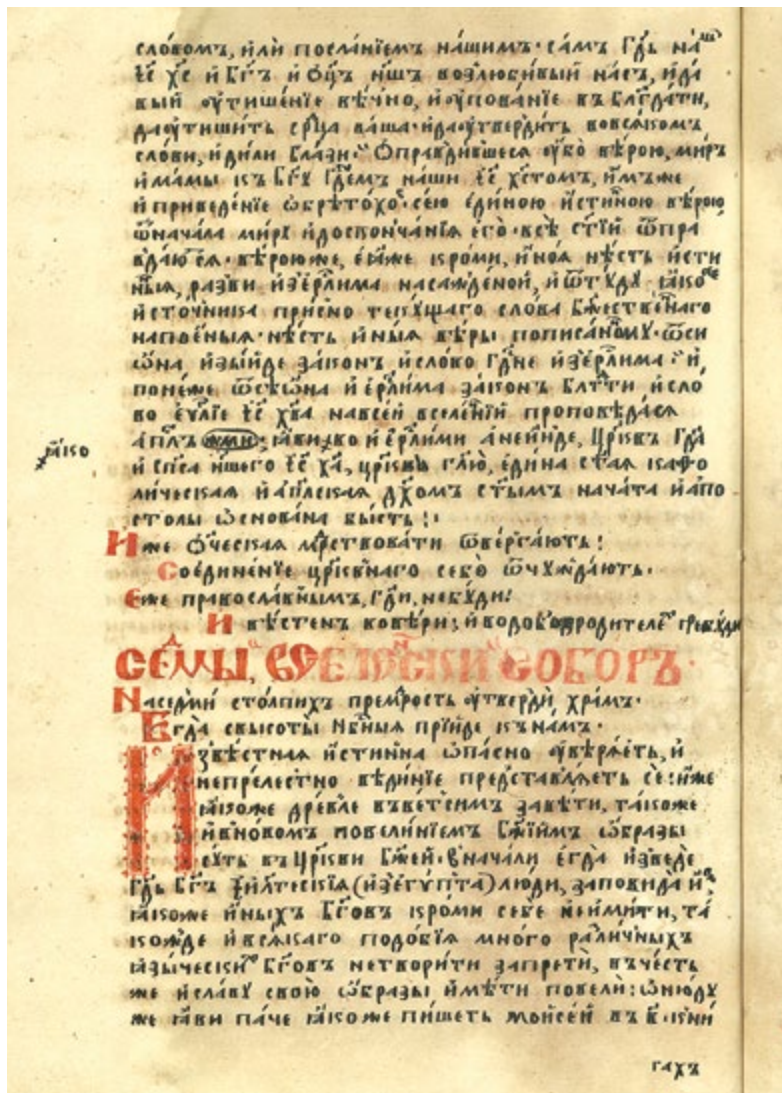 словомъ, и҆лѝ посла́нїемъ на́шимъ · са́мъ гд҃ь на́ш
і҆с҃ х҃с и҆ бг҃ъ и҆ ѻ҆ц҃ъ н҃шъ возлюби́вый на́съ, и҆да́
вый ᲂу҆тише́нїе вѣ́чно, и҆ᲂу҆пова́нїе въ бл҃года́ти,
даᲂу҆тиши́тъ ср҃ца ва́ша · и҆даᲂу҆тверди́тъ вовся́комъ
сло́ви, и҆ди́ли бла́зи · Ѻ҆правди́вшеся ᲂу҆бо вѣ́рою, ми́ръ
и҆мамы къ бг҃ꙋ гд҃емъ на́ши і҆с҃ хр҃сто́мъ, и҆мъже
и҆ приведе́нїе ѡ҆брѣто́хо · се́ю є҆ди́ною и҆́стинною вѣ́рою
ѿнача́ла ми́рꙋ и҆доскончанїѧ є҆гѡ̀ · всѝ ст҃їи ѡ҆пра
вда́ютсѧ · вѣ́рою же, є҆ѧ́же кро́ми, и҆на́ѧ нѣ́сть и҆́сти
нныѧ, ра́зви и҆з̾є҆рл҃и́ма насажде́ной, и҆ ѿтꙋ́дꙋ ꙗ҆́ко
и҆сто́чника при́сно текꙋ́щаго сло́ва бж҃е́ственнаго
напоє́ныѧ · нѣ́сть и҆ны́ѧ вѣ́ры пописа́номꙋ · ѿси
ѡ҆́на и҆зы́йде зако́нъ и҆сло́во гд҃не и҆з̾є҆рл҃и́ма · и҆
поне́же ѿсїѡ́на и҆ є҆рл҃и́ма зако́нъ бл҃года́ти и҆сло́
во є҆ѵл҃їе і҆с҃ х҃ва навсе́й вселе́нїй проповѣ́дасѧ
а҆пл҃ъ ѧми, ꙗ҆ви и҆ є҆рл҃и́ми а҆не и҆́нде, цр҃квъ гд҃а
ꙗ҆́ко
и҆ сп҃са н҃шего і҆с҃ х҃а, цр҃квь гл҃ю, є҆ди́на ст҃а́ѧ каѳо
ли́ческаѧ и҆ а҆пл҃скаѧ дх҃омъ ст҃ымъ нача́та и҆ а҆по
столы ѡ҆снова́на бы́сть :·
И҆́же ѻ҆ч҃ескаѧ мꙋ́дрствовати ѿверга́ютъ !
Соедине́нїе цр҃ко́внаго себѐ ѿчꙋжда́ютъ ·
Е҆́же правосла́внымъ, гд҃и, небꙋ́ди!
И҆звѣ́стенъ ковѣ́ри;
СЕ́ДМЫ, ВСЕЛЕ́НСКИ СОБО́РЪ ·
Наседми́ столпи́хъ премⷣрость ᲂу҆твердѝ хра́мъ ·
Е҆гда̀ свысоты̀ Нб҃ныѧ прїи́де къна́мъ ·
И҆звѣ́стнаѧ и҆́стинна ѡ҆па́сно ᲂу҆вѣрѧ́етъ, и҆
непреле́стно вѣ́динїе представлѧ́етъ се: и҆́же
ꙗ҆́коже дре́вле въве́тсимъ завѣ́ти, та́коже
и҆вно́вомъ повели́нїемъ бж҃їимъ ѡ҆́бразы
сꙋ́ть въ цр҃кви бж҃їей · внача́ли є҆гда̀ и҆зведе
гд҃ь бг҃ъ і҆и҃лтескїѧ (и҆зъегѵ́пта) лю́ди, запови́да и҆,
ꙗ҆́коже и҆ны́хъ бг҃о́въ кро́ми себе неимѣ́ти, та́
кожде и҆всѧ́каго подо́бїѧ мно́го разли́чныхъ
ꙗ҆зы́чески бг҃о́въ нетвори́ти запретѝ, въче́сть
же и҆сла́вꙋ свою̀ ѡ҆́бразы и҆мѣ́ти повелѝ: ѡ҆ню́дꙋ
же ꙗ҆́ви па́че ꙗ҆́коже пи́шетъ моѵ̈се́й въ в҃ · кни́
гахъ